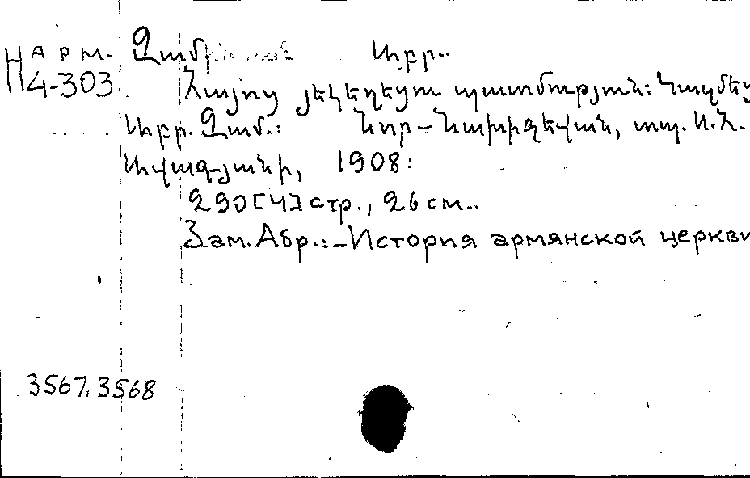 Н АРМ. Զամինյան Աբր..
4-303 Հայոց յեկեղեցու պատմություն: Կազմեց
Աբր. Զամ.: Նոր-Նախիջեվան, տպ. Ս.Հ.
Ավագյանի, 1908:
290[4]стр., 26см..
Зам. Абр.:-История армянской церкви
3567, 3568